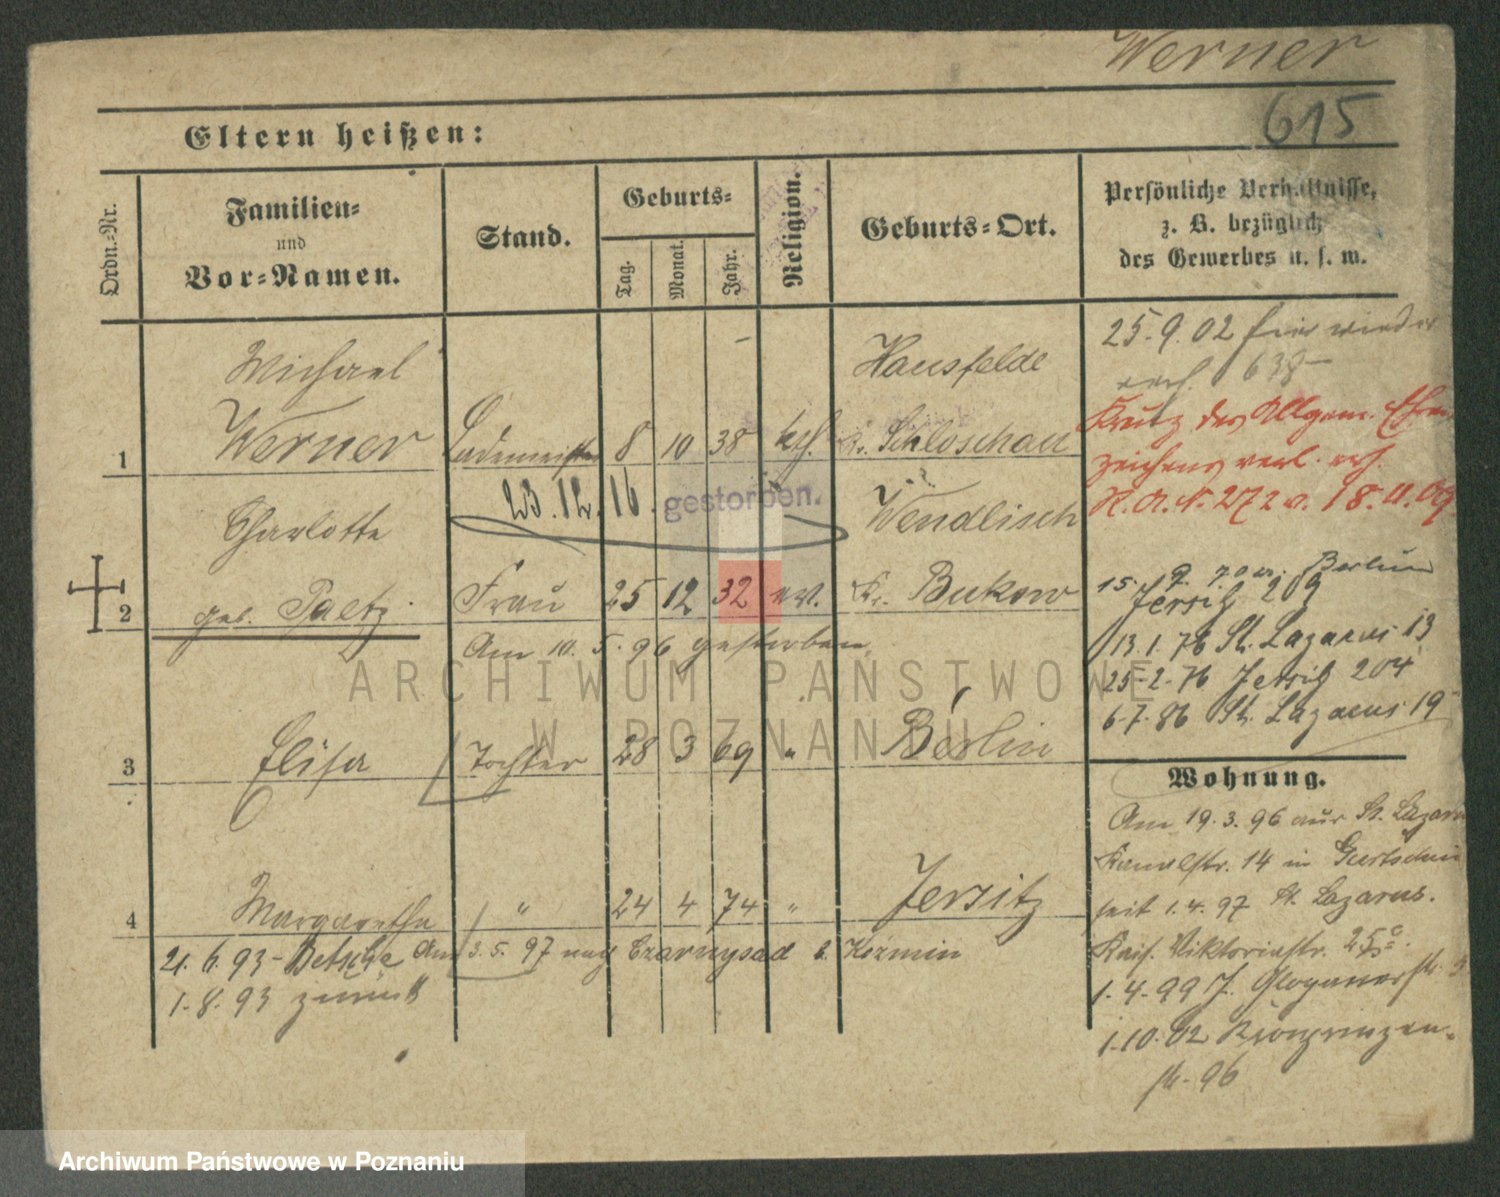 Werner
615
Eltern heißen:
Ordn.-Nr.
Familien-
und
Vor-Namen.
Stand.
Geburts-
Tag.
Monat.
Jahr.
Religion.
Geburts-Ort.
Persönliche Verhältnisse,
z. B. bezüglich
des Gewerbes u. s. w.
25.9.02 hier wieder
638
Michael Hansfelde
1 Werner Lademeister 8 10 38 Kr. Schlochau
Kreuz des Allgem.
zeichens verl.
272 v. 18.11.09
23.12.16. gestorben.
Charlotte Wendlisch
2 geb. Paetz Frau 25 12 32 ev. Kr. Bukow
Am 10.5.96 gestorben.
15. Berlin
Jersitz 209
13.1.76 St. Lazarus 13
25.2.76 Jersitz 204
6.7.86 St. Lazarus 19
3 Elisa Tochter 28 3 69 " Berlin
Wohnung.
Am 19.3.96 aus St. Lazarus
Kanalstr. 14 in Gurtschin
seit 1.4.97 St. Lazarus.
Kais. Viktoriastr. 25
1.4.99 Glogauerstr.
1.10.02 Kronprinzen-
str. 96
4 Margarethe " 24 4 74 " Jersitz
21.6.93 - Betsche Am 3.5.97 nach Czarnysad b. Kozmin
1.8.93 zurück
ARCHIWUM PAŃSTWOWE
W POZNANIU
Archiwum Państwowe w Poznaniu